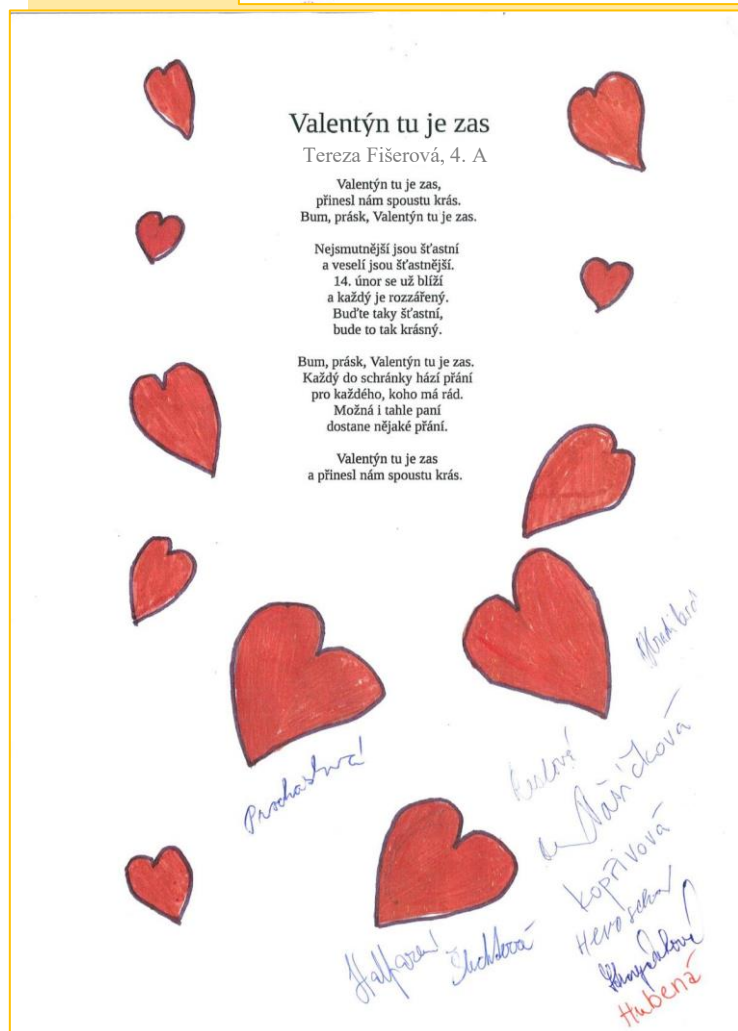 Valentýn tu je zas
Tereza Fišerová, 4. A
Valentýn tu je zas,
přinesl nám spoustu krás.
Bum, prásk, Valentýn tu je zas.
Nejsmutnější jsou šťastní
a veselí jsou šťastnější.
14. únor se už blíží
a každý je rozzářený.
Buďte taky šťastní,
bude to tak krásný.
Bum, prásk, Valentýn tu je zas.
Každý do schránky hází přání
pro každého, koho má rád.
Možná i tahle paní
dostane nějaké přání.
Valentýn tu je zas
a přinesl nám spoustu krás.
Kopřivová
Hubená